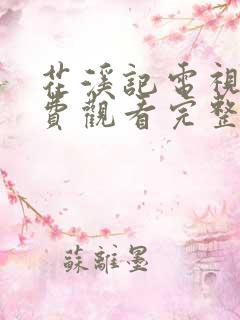 茬溪記電視
費觀看完整
蘇離墨